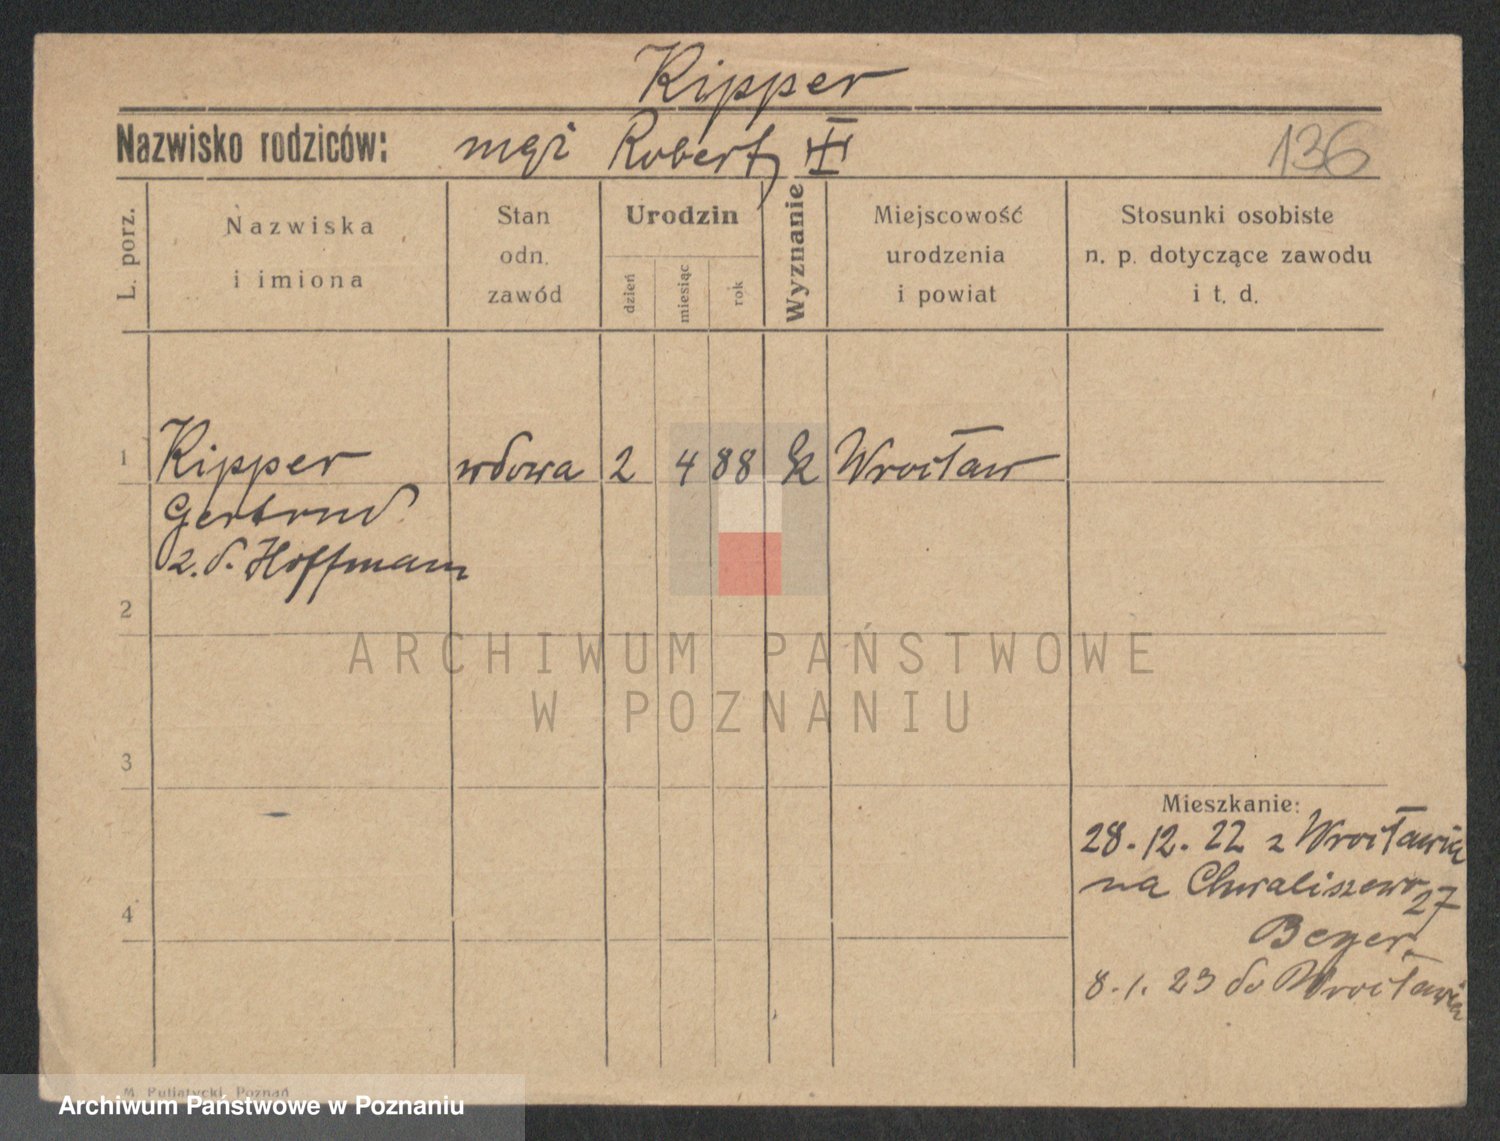 Kipper
Nazwisko rodziców: mąż Robert
136
L. porz.
Nazwiska
i imiona
Stan
odn.
zawód
Urodzin
dzień
miesiąc
rok
Wyznanie
Miejscowość
urodzenia
i powiat
Stosunki osobiste
n. p. dotyczące zawodu
i t. d.
1 Kipper wdowa 2 4 88 Wrocław
Gertrud
z. d. Hoffmann
2
3
4
Mieszkanie:
28. 12. 22 z Wrocławia
na Chwaliszewo 27
Beyer.
8. 1. 23 do Wrocławia
ARCHIWUM PAŃSTWOWE
W POZNANIU
M. Putiatycki, Poznań
Archiwum Państwowe w Poznaniu